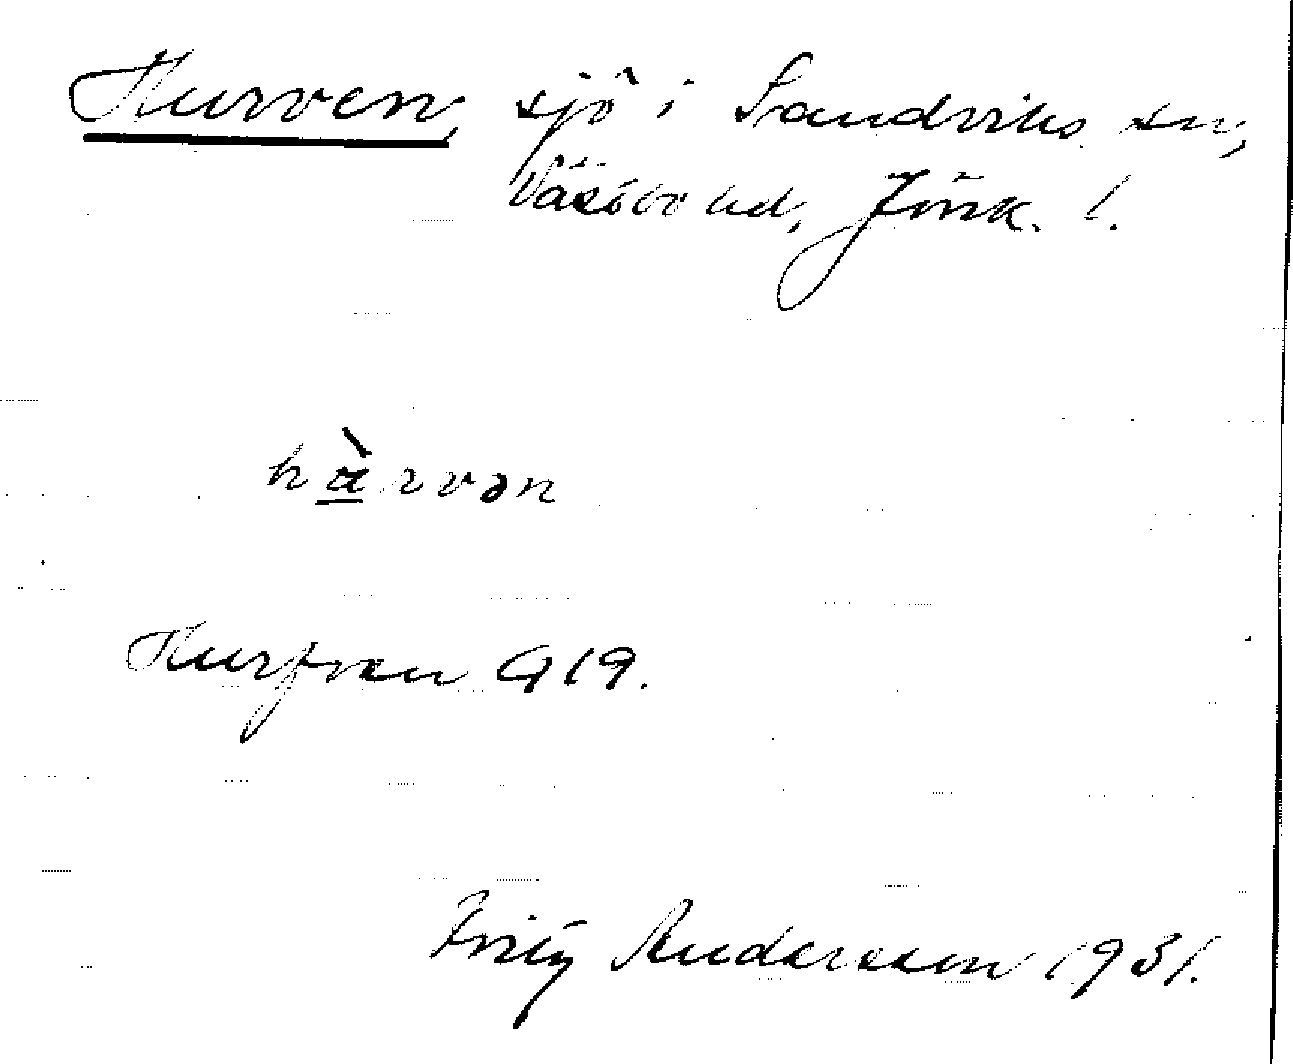 Hurven, sjö i Sandviks sn,
Västbo hd, Jönk. l.
hàrvən
Hurfven G 19.
Fritz Andersson 1931.